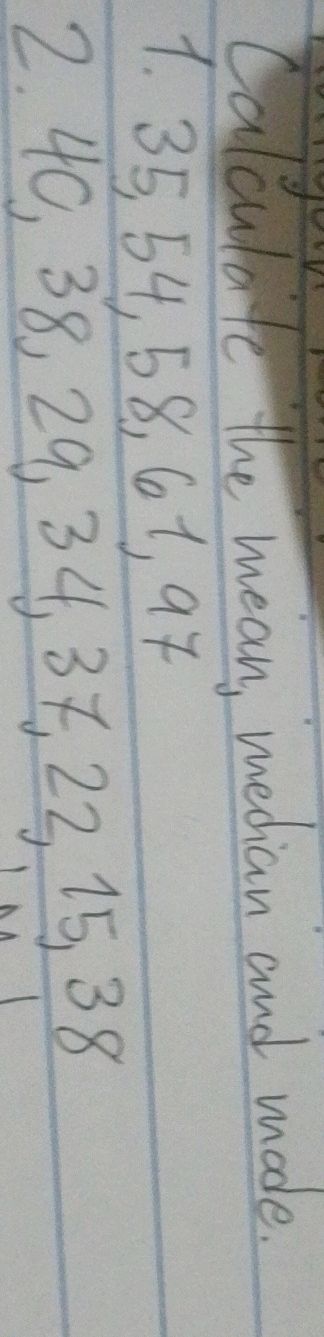 Calculate the mean, median and mode.
1. 35, 54, 58, 61, 97
2. 40, 38, 29, 34, 37, 22, 15, 38